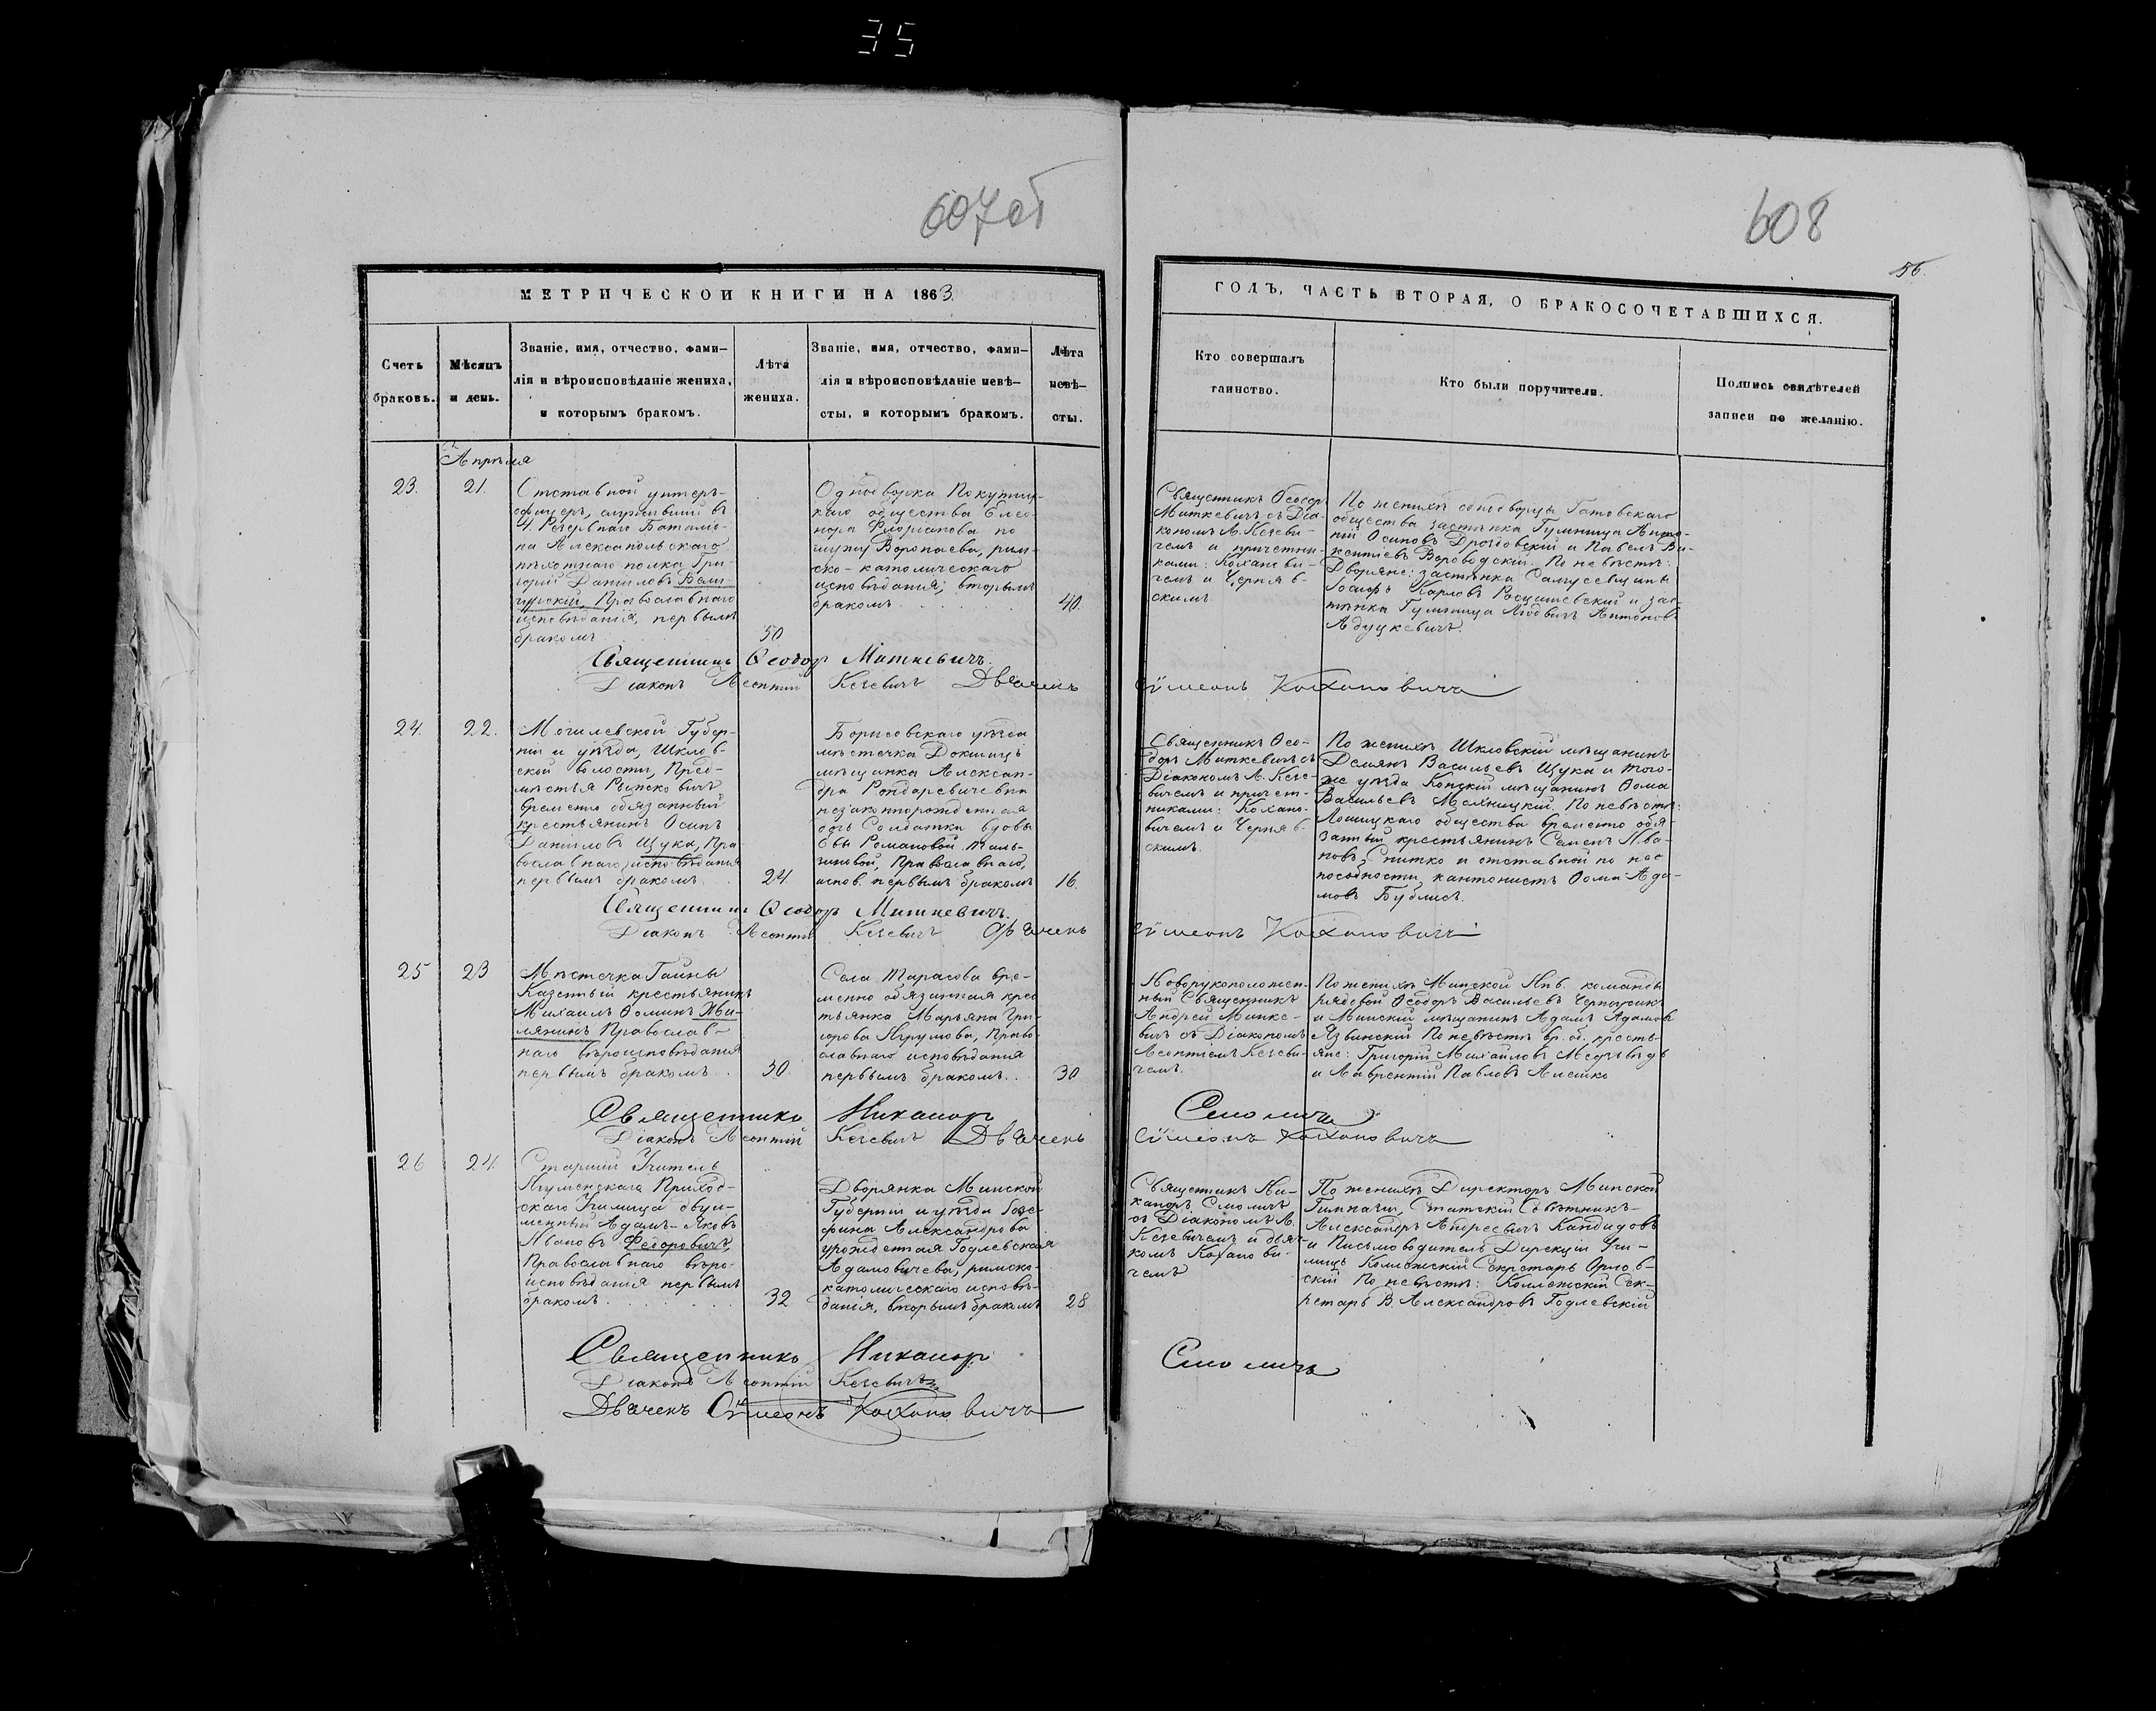 35
607об
608
56.
МЕТРИЧЕСКОЙ КНИГИ НА 1863.
ГОДЪ, ЧАСТЬ ВТОРАЯ, О БРАКОСОЧЕТАВШИХСЯ.
Счетъ
браковъ.
Мѣсяцъ
и день.
Званіе, имя, отчество, фами-
лія и вѣроисповѣданіе жениха,
и которымъ бракомъ.
Лѣта
жениха.
Званіе, имя, отчество, фами-
лія и вѣроисповѣданіе невѣ-
сты, и которымъ бракомъ.
Лѣта
невѣ-
сты.
Кто совершалъ
таинство.
Кто были поручители.
Подпись свидѣтелей
записи по желанію.
Апрѣля
23.
21.
Отставной унтеръ-
офицеръ, служившій въ
4. Резервнаго Баталіо-
на Алексопольскаго
пѣхотнаго полка Гри-
горій Даниловъ
Православнаго
исповѣданія, первымъ
бракомъ
50
Однодворка
каго общества Елео-
нора Флоріанова по
мужу Воропаева, рим-
ско-католическаго
исповѣданія, вторымъ
бракомъ
40.
Священникъ Ѳеодор
Миткевичъ съ Діа-
кономъ Л. Кезеви-
чемъ и причетни-
ками: Коханови-
чемъ и Черняв-
скимъ.
По женихѣ однодворцы Гатовскаго
общества застѣнка Гумница Анто-
ній Осиповъ Дроздовскій и Павелъ Ви-
кентіевъ Вороводскій. По невѣстѣ:
Дворяне: застѣнка Самусевщины
Іосифъ Карловъ Росцишевскій и зас-
тѣнка Гумница Людвигъ Антоновъ
Адуцкевичъ.
Священникъ Ѳеодоръ Миткевичъ.
Діаконъ Леонтій Кезевичъ Дьячекъ Сѵмеонъ Кохановичъ
24.
22.
Могилевской Губер-
ніи и уѣзда, Шклов-
ской волости, Пред-
мѣстья Рыжковичъ
временно обязанный
крестьянинъ Осипъ
Даниловъ Щука, Пра
вославнаго исповѣданія
первымъ бракомъ
24
Борисовскаго уѣзда
мѣстечка Докшицъ
мѣщанка Алексан-
дра Рондаревичевна
незаконнорожденная
отъ Солдатки вдовы
Евы Романовой
Православнаго,
испов. первымъ бракомъ
16.
Священникъ Ѳео-
доръ Миткевичъ съ
Діакономъ Л. Кезе-
вичемъ и причет-
никами: Кохано-
вичемъ и Черняв-
скимъ.
По женихѣ Шкловскій мѣщанинъ
Демянъ Васильевъ Щука и того-
же уѣзда Копскій мѣщанинъ Ѳома
Васильевъ По невѣстѣ:
Лошицкаго общества временно обя-
занный крестьянинъ Семенъ Ива-
новъ Снитко и отставной по нес
пособности кантонистъ Ѳома Ада-
мовъ Бублисъ.
Священникъ Ѳеодоръ Миткевичъ.
Діаконъ Леонтій Кезевичъ Дьячекъ Сѵмеонъ Кохановичъ
25
23
Мѣстечка Гайны
Казенный крестьянинъ
Михаилъ Ѳоминъ
Православ-
наго вѣроисповѣданія
первымъ бракомъ
30.
Села Тарасова вре-
менно обязанная крес
тьянка Марьяна Гри-
горова Право-
славнаго исповѣданія
первымъ бракомъ
30
Новорукоположен-
ный Священникъ
Андрей Минке-
вичъ съ Діакономъ
Леонтіемъ Кезеви-
чемъ.
По женихѣ Минской Инв. команды
рядовой Ѳеодоръ Васильевъ
и Минскій мѣщанинъ Адамъ Адамовъ
Язвинскій По невѣстѣ вр. об. кресть-
яне: Григорій Михайловъ Медвѣдь
и Лаврентій Павловъ Алешко
Священникъ Никаноръ Смоличъ
Діаконъ Леонтій Кезевичъ Дьячекъ Сѵмеонъ Кохановичъ
26
24
Старшій Учитель
Игуменскаго Приход-
скаго Училища двуи-
менный Адамъ-Яковъ
Ивановъ Федоровичъ,
Православнаго вѣро-
исповѣданія первымъ
бракомъ
32
Дворянка Минской
Губерніи и уѣзда Іозе-
фина Александрова
урожденная Годлевская
Адамовичева, римско-
католическаго исповѣ-
данія, вторымъ бракомъ
28
Священникъ Ни-
каноръ Смоличъ
съ Діакономъ Л.
Кезевичемъ и дьяч-
комъ Коханови-
чемъ
По женихѣ Директоръ Минской
Гимназіи, Статскій Совѣтникъ-
Александръ Андреевичъ Кандидовъ
и Письмоводитель Дирекціи Учи-
лищъ Коллежскій Секретарь Орлов-
скій По невѣстѣ: Коллежскій Сек-
ретарь В. Александровъ Годлевскій
Священникъ Никаноръ Смоличъ
Діаконъ Леонтій Кезевичъ
Дьячекъ Сѵмеонъ Кохановичъ